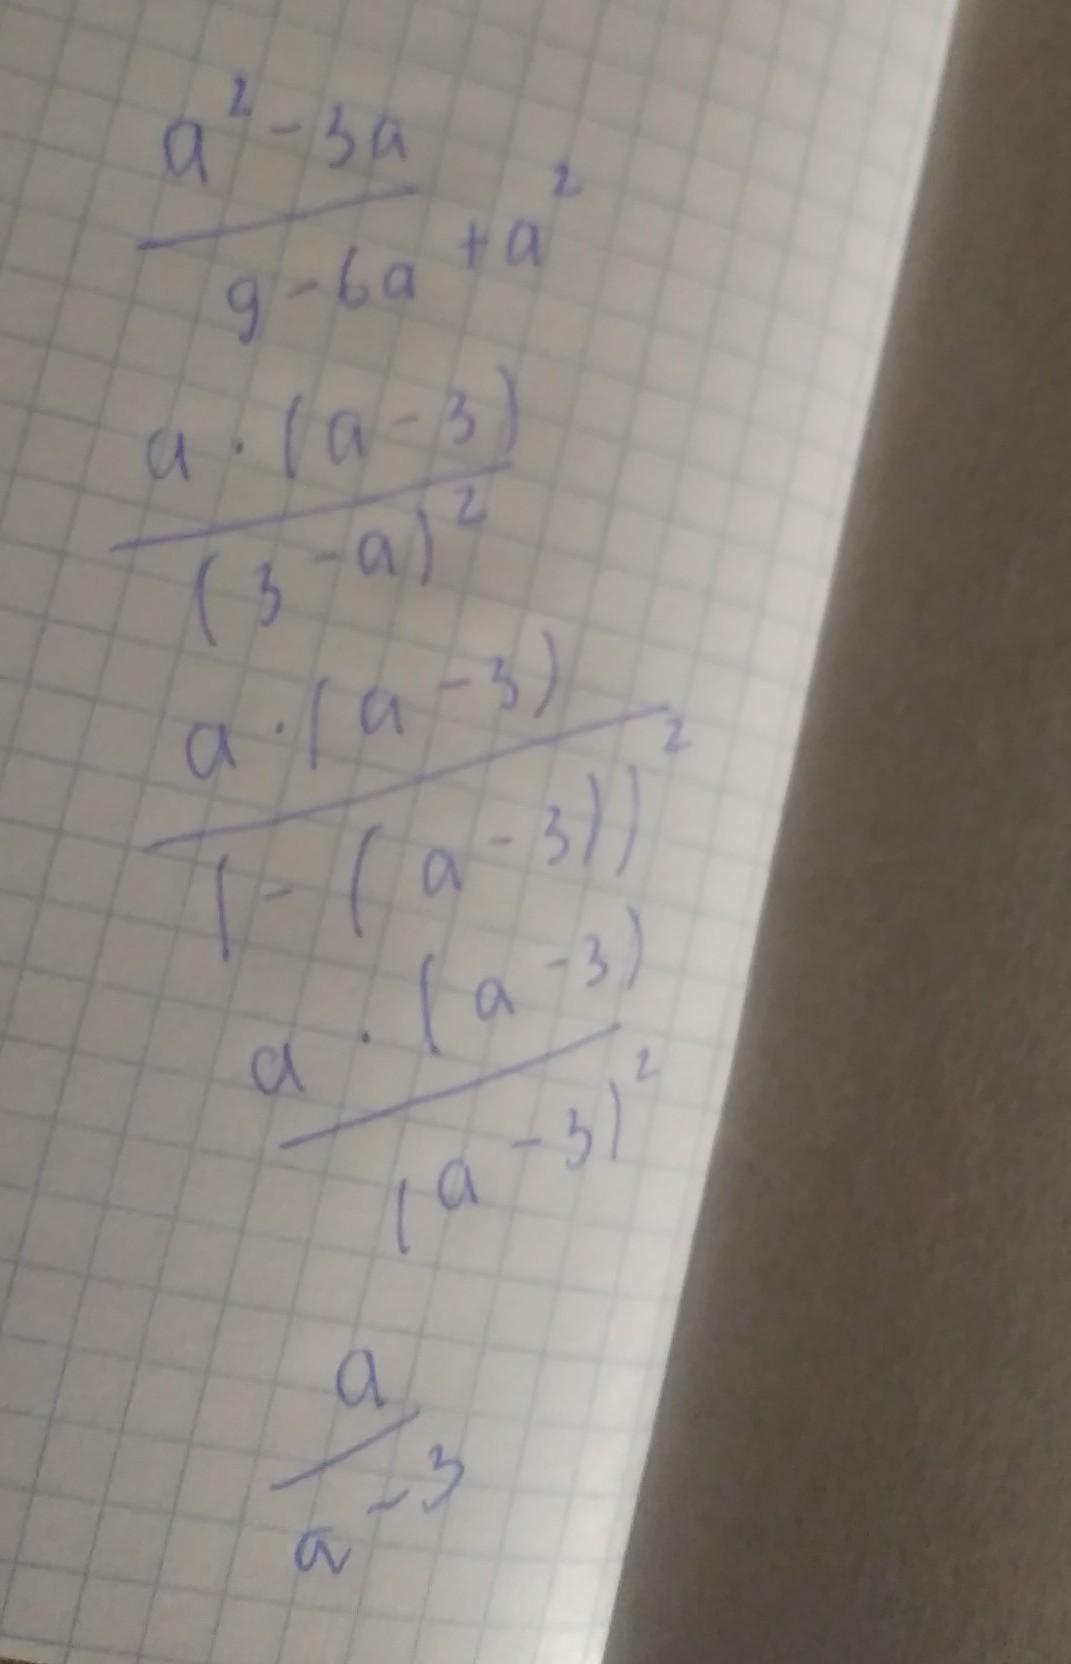 a² - 3a
9 - 6a + a²
a · (a - 3)
(3 - a)²
a · (a - 3)
(- (a - 3))²
a · (a - 3)
(a - 3)²
a
a - 3